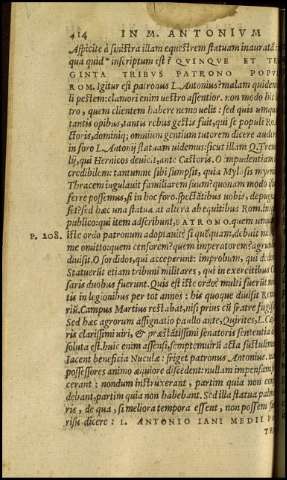 414 IN M. ANTONIVM
Aspicite à sinistra illam equestrem statuam inauratā:
qua quid inscriptum est? QVINQVE ET TE
GINTA TRIBVS PATRONO POPV
ROM. Igitur est patronus L. Antonius? malam quidem
li pestem: clamori enim vestro assentior. non modo hic
tro, quem clientem habere nemo uelit: sed quis unqu
tantis opibus, tantis rebus gestis fuit, qui se populi Ro
ctoris, dominiq; omnium gentium tutorem dicere auder
in foro L. Antonij statuam uidemus: sicut illam Q. Trem
lij, qui Hernicos deuicit, ante Castoris. O impudentiam
credibilem: tantumne sibi sumpsit, quia Mylasis myrm
Thracem iugulauit familiarem suum? quonam modo is
ferre possemus, si in hoc foro, spectātibus uobis, depug
set? sed hæc una statua. altera ab equitibus Rom.
publico: qui item adscribunt, PATRONO. quem unqu
P. 208. iste ordo patronum adoptauit? si quēquam, debuit
me omitto: quem censorem? quem imperatorem? agrum
diuisit. O sordidos, qui acceperunt: improbum, qui de
Statuerūt etiam tribuni militares, qui in exercitibus C
saris duobus fuerunt. Quis est iste ordo? multi fuerūt mu
tis in legionibus per tot annos: his quoque diuisit
riū. Campus Martius restabat, nisi prius cū fratre fugi
Sed hæc agrorum assignatio paullo ante, Quirites, L. Cæ
ris clarissimi uiri, & præstātissimi senatoris sententia
soluta est. huic enim assensi, septemuirū acta sustulim
Iacent beneficia Nuculæ: friget patronus Antonius. na
possessores animo æquiore discedent: nullam impensam
cerant: nondum instruxerant, partim quia non con
debant, partim quia non habebant. Sed illa statua palm
ris, de qua, si meliora tempora essent, non possem si
risu dicere: L. ANTONIO IANI MEDII P